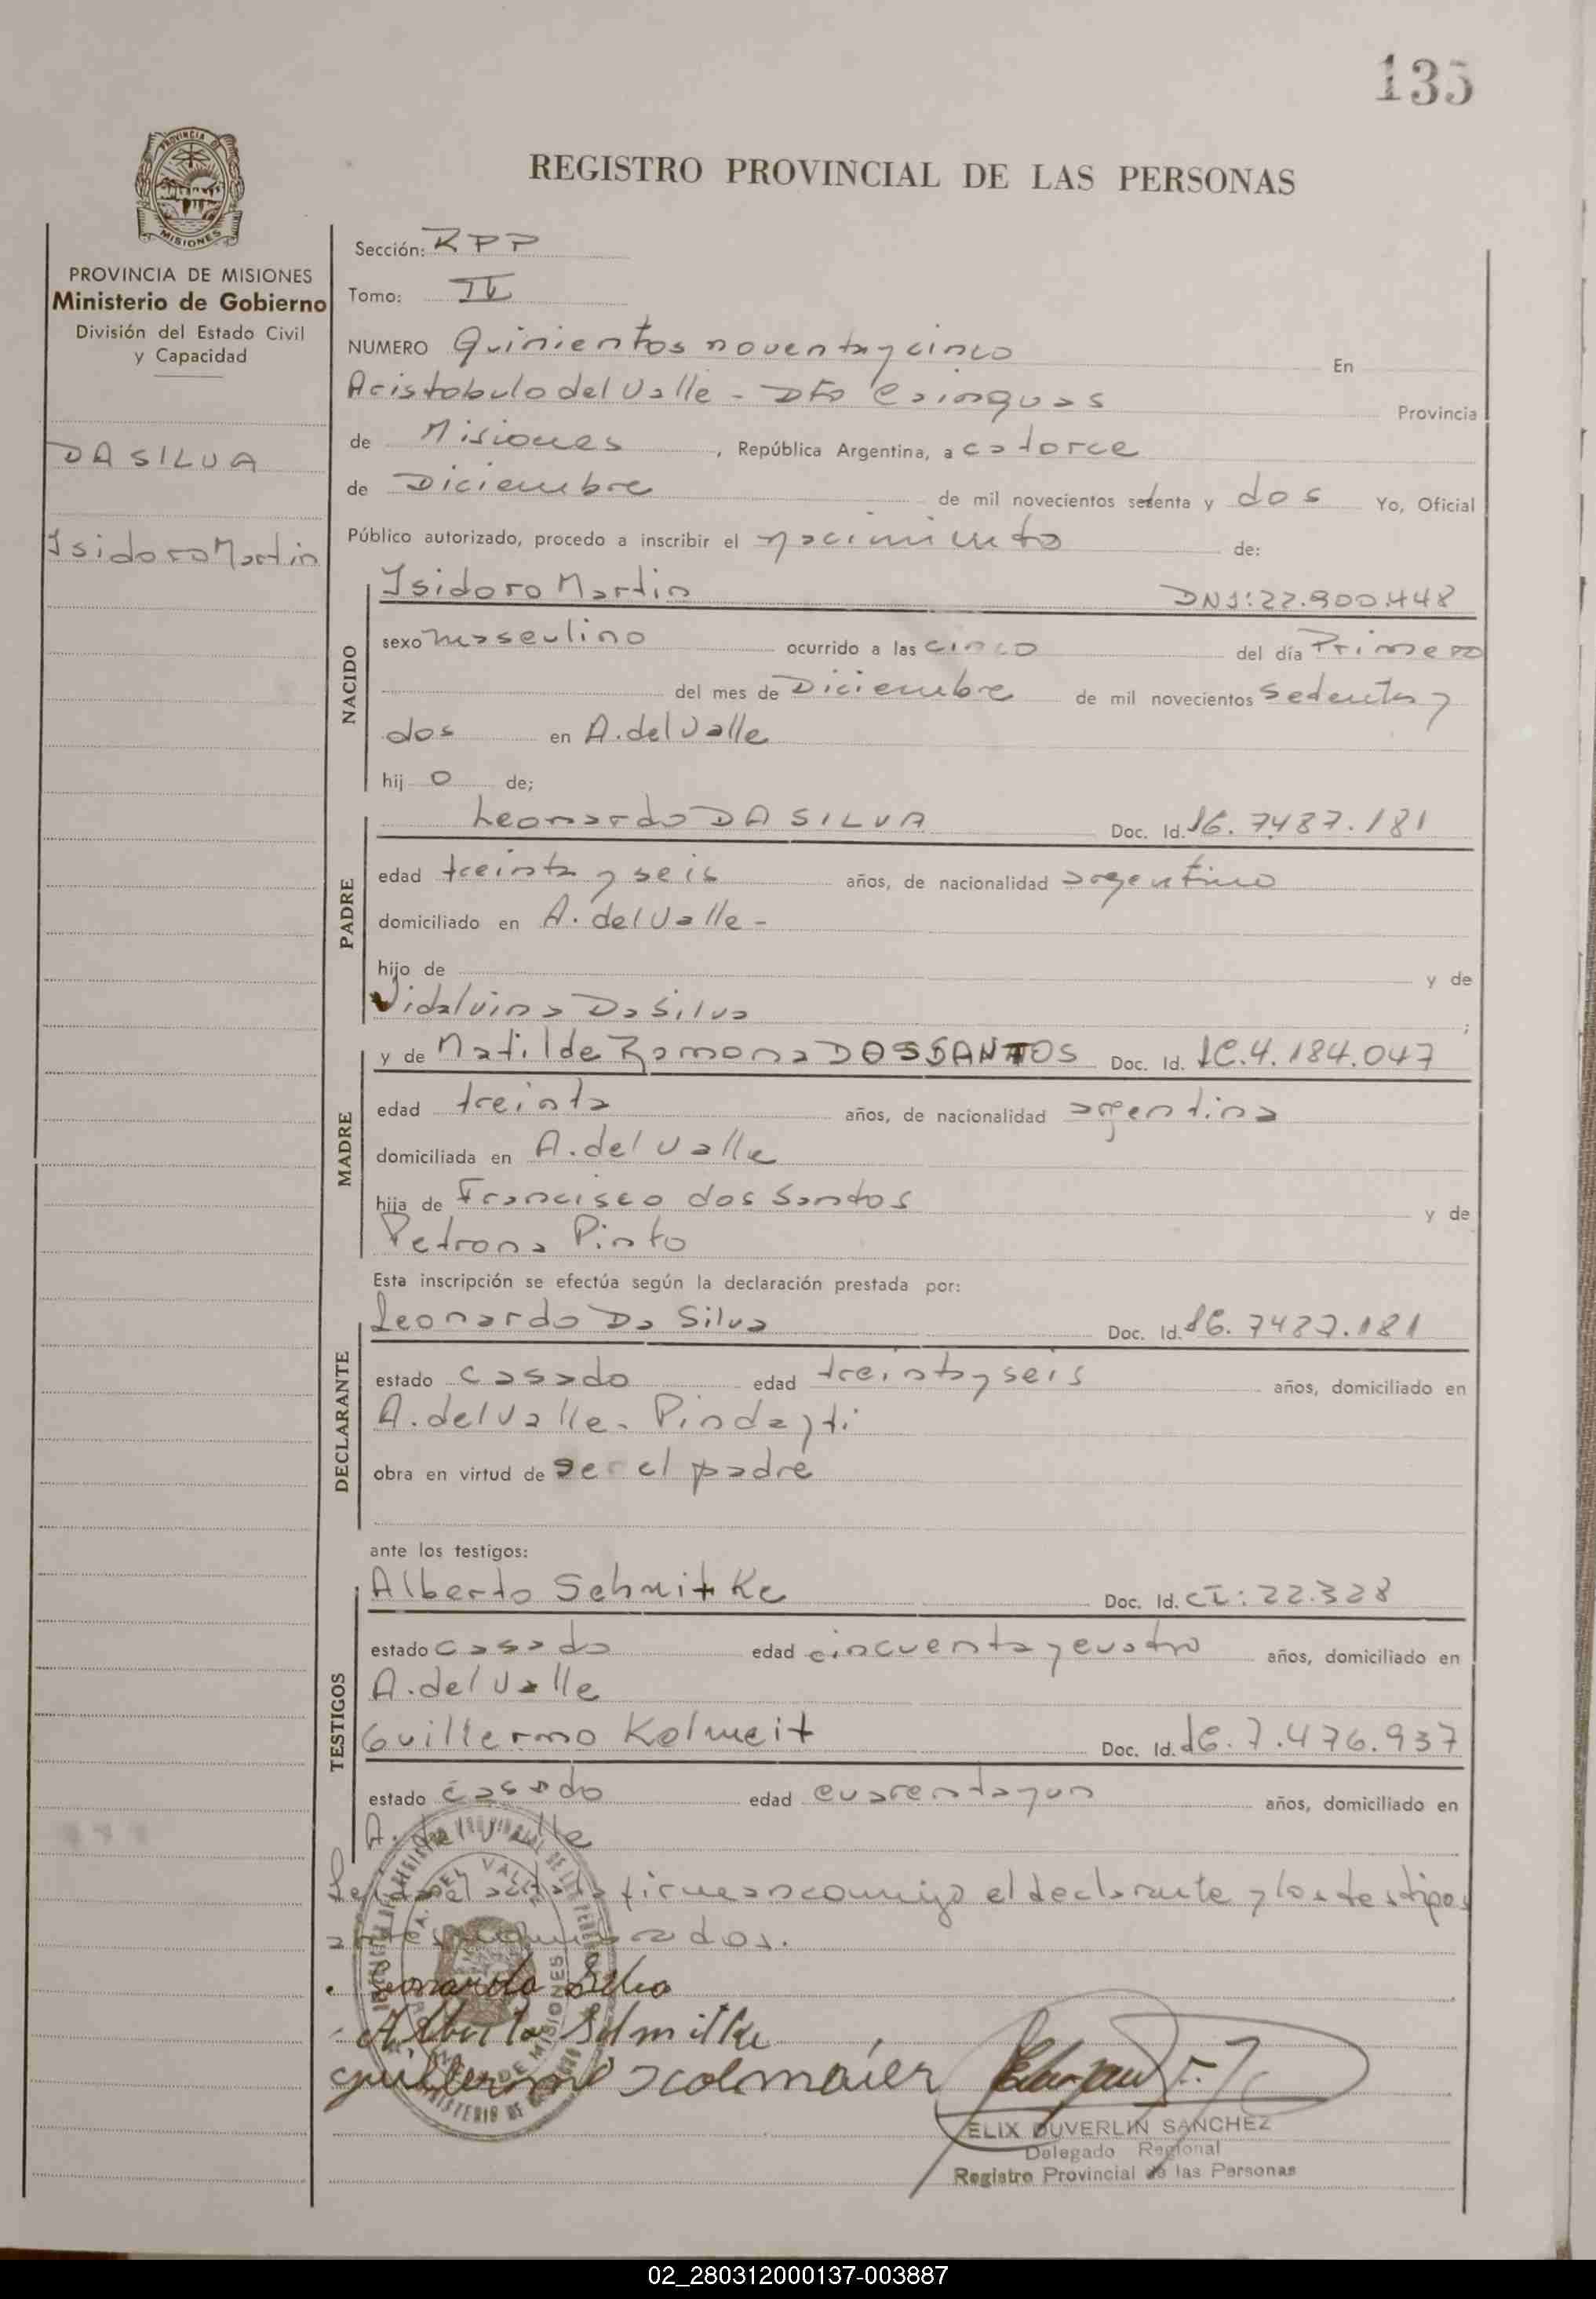 135
REGISTRO PROVINCIAL DE LAS PERSONAS
PROVINCIA DE MISIONES
Ministerio de Gobierno
División del Estado Civil
y Capacidad
DA SILVA
Isidoro Martin
Sección: RPP
Tomo: IV
NUMERO Quinientos noventa y cinco En
Aristobulo del Valle - Dto Cainguas Provincia
de Misiones, República Argentina, a catorce
de Diciembre de mil novecientos setenta y dos Yo, Oficial
Público autorizado, procedo a inscribir el nacimiento de:
NACIDO
Isidoro Martin DNI: 22.900.448
sexo masculino ocurrido a las cinco del día Primero
del mes de Diciembre de mil novecientos setenta y
dos en A. del Valle
hijo de;
PADRE
Leonardo DA SILVA Doc. Id. 7487.181
edad treinta y seis años, de nacionalidad argentino
domiciliado en A. del Valle -
hijo de y de
Vidalvina Da Silva ;
MADRE
y de Matilde Ramona DOS SANTOS Doc. Id. LC. 4.184.047
edad treinta años, de nacionalidad argentina
domiciliada en A. del Valle
hija de Francisco dos Santos y de
Petrona Pinto
Esta inscripción se efectúa según la declaración prestada por:
DECLARANTE
Leonardo Da Silva Doc. Id. 7487.181
estado casado edad treinta y seis años, domiciliado en
A. del Valle - Pindayti
obra en virtud de ser el padre
ante los testigos:
TESTIGOS
Alberto Schmitke Doc. Id. CI: 22.328
estado casado edad cincuenta y cuatro años, domiciliado en
A. del Valle
Guillermo Kolmeit Doc. Id. 7.476.937
estado casado edad cuarenta y un años, domiciliado en
A. del Valle
Leida el acta la firman conmigo el declarante y los testigos
antes nombrados.
Leonardo Silva
Alberto Schmitke
Guillermo Kolmaier
ELIX DUVERLIN SANCHEZ
Delegado Regional
Registro Provincial de las Personas
02_280312000137-003887